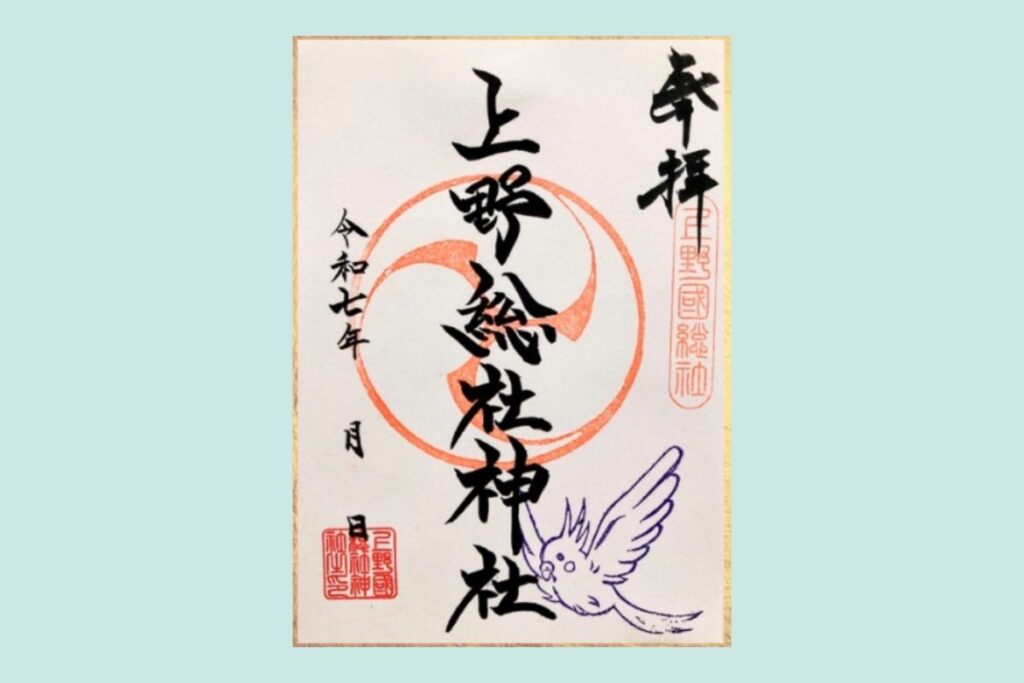 奉拝
上野國総社
上野総社神社
令和七年 月 日
上野國
総社神
社之印